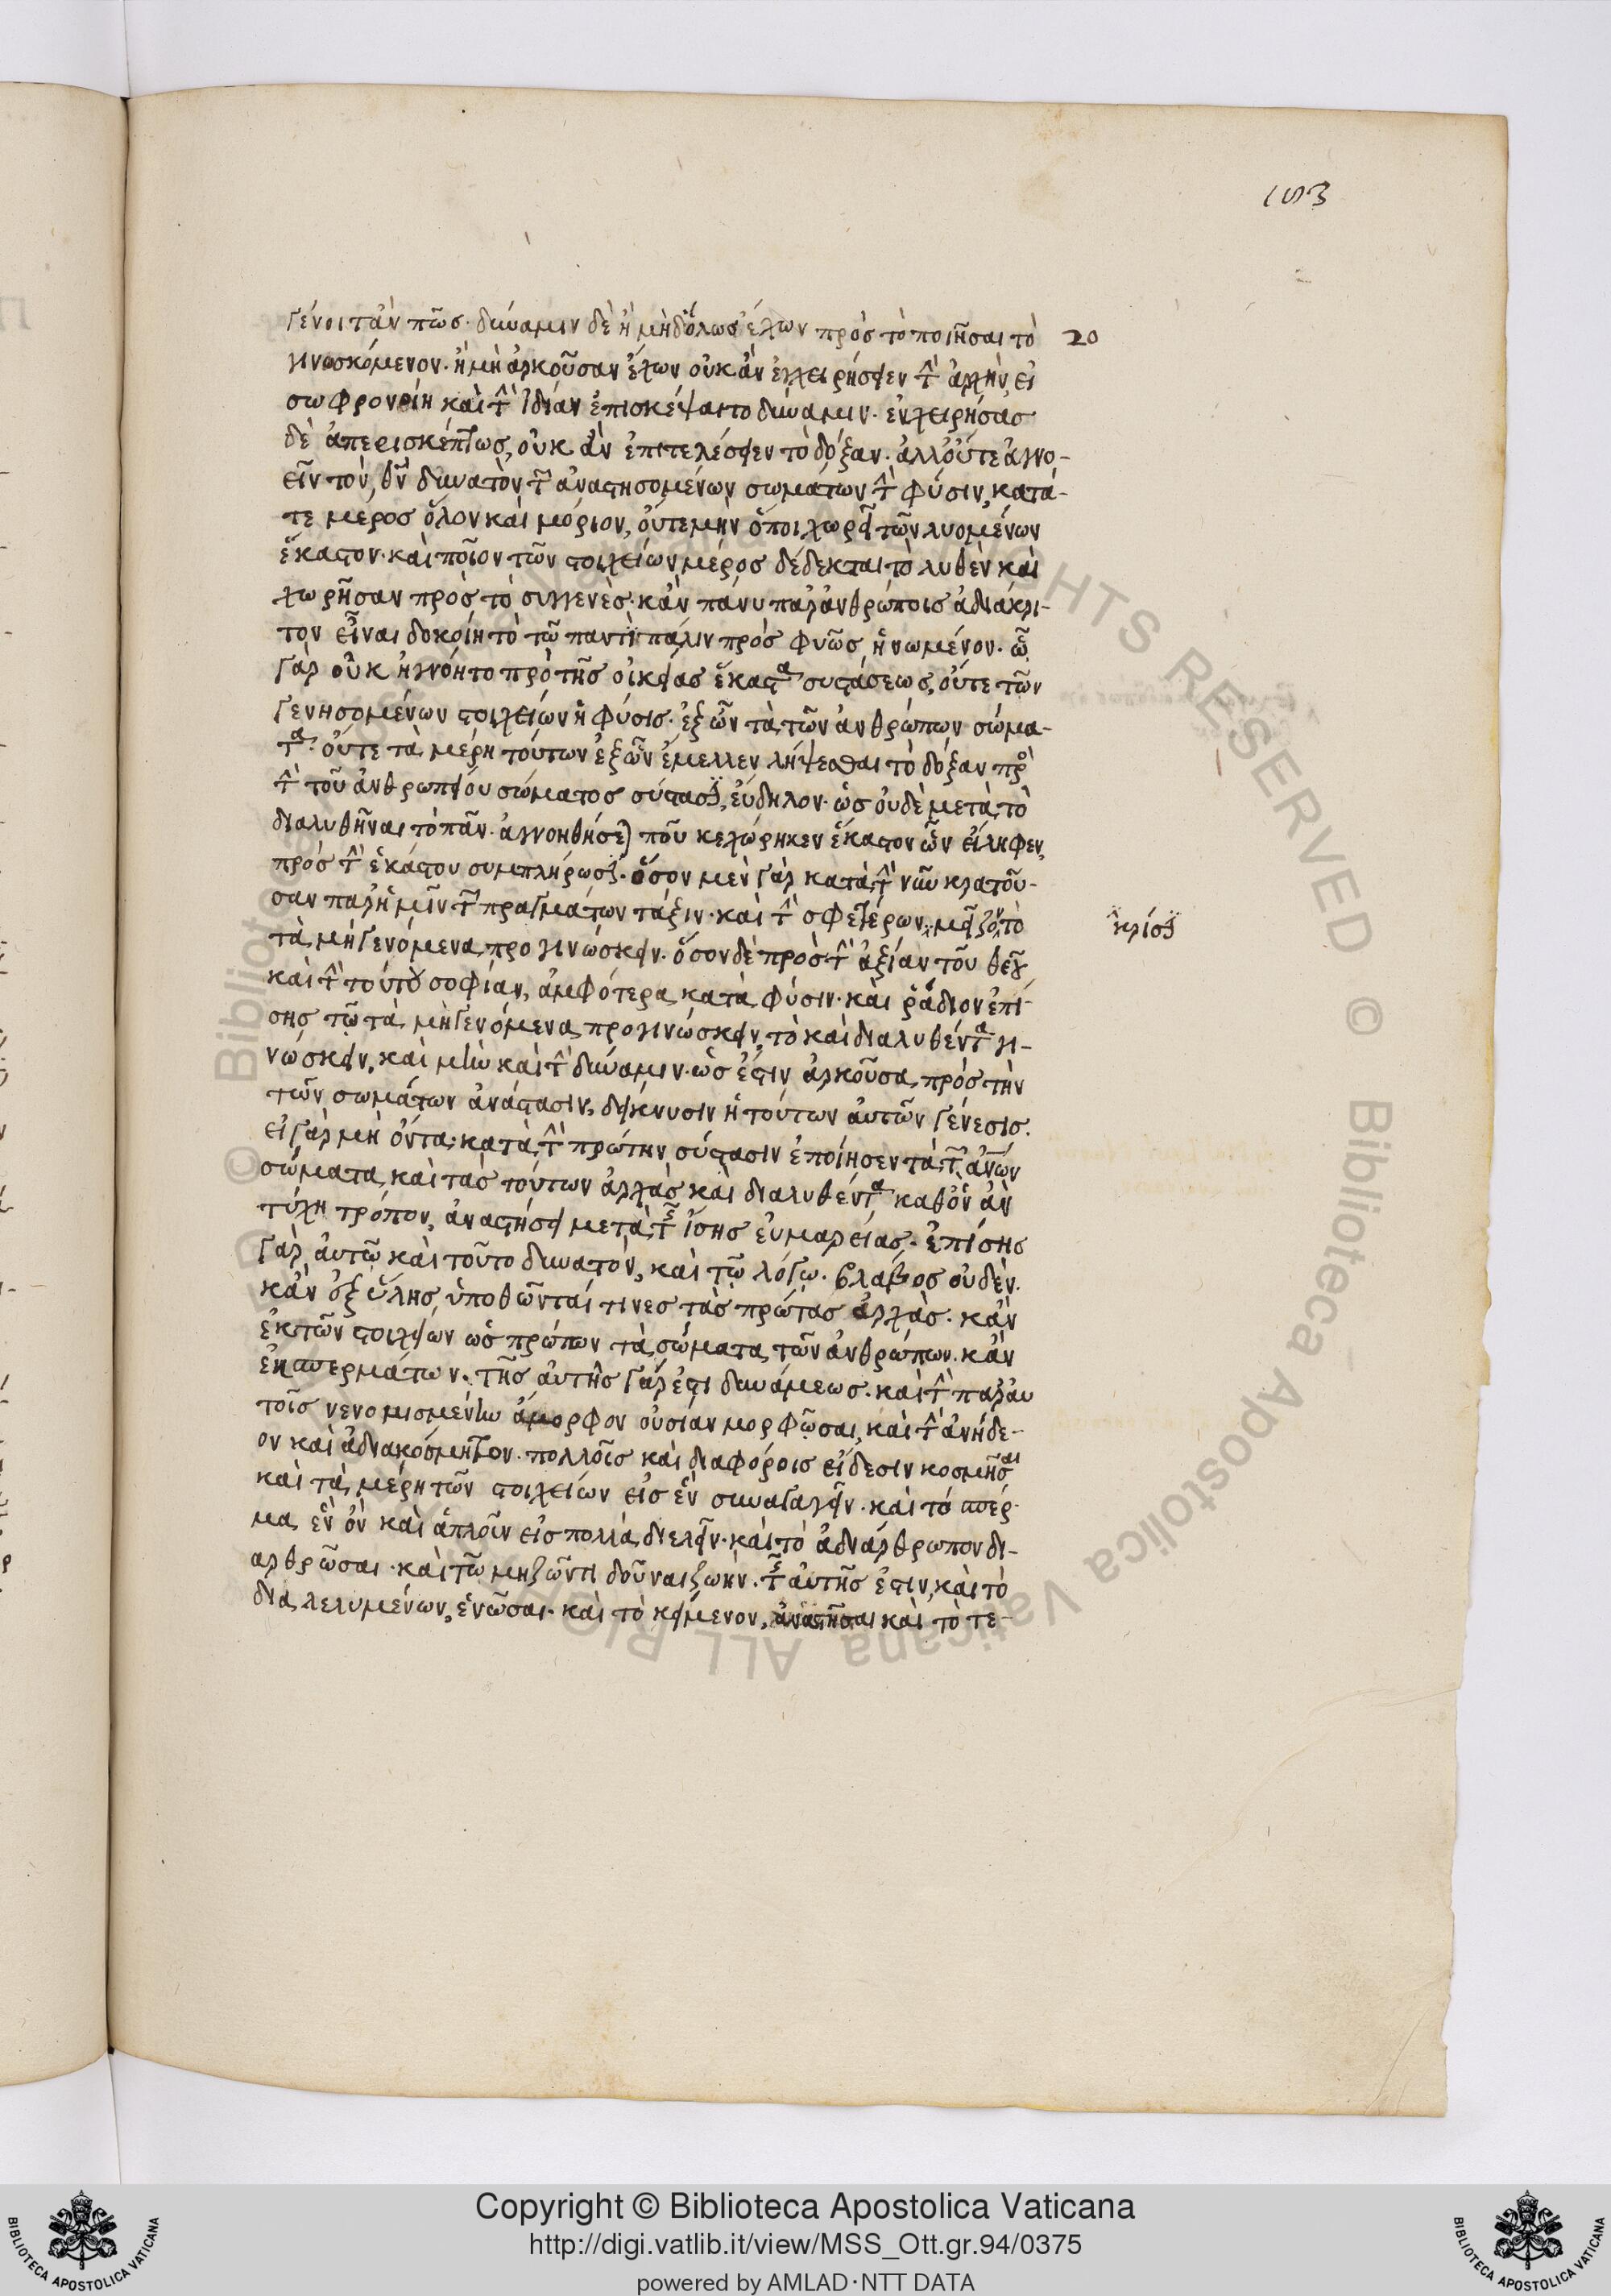 183
γένοιτ' ἄν πως· δύναμιν δὲ ἢ μὴ δόλως ἔχων πρὸς τὸ ποιῆσαι τὸ 20
γινοσκόμενον· ἢ μὴ ἀρκοῦσαν ἔχων οὐκ ἂν ἐγχειρήσειεν τὴν ἀρχὴν, εἰ
σωφρονοίη καὶ τὴν ἰδίαν ἐπισκέψαιτο δύναμιν· ἐγχειρήσας
δὲ ἀπερισκέπτως, οὐκ ἂν ἐπιτελέσειεν τὸ δόξαν· ἀλλ' οὔτε ἀγνο-
εῖν τὸν θν δυνατὸν τῶν ἀναστησομένων σωμάτων τὴν φύσιν, κατά-
τε μέρος ὅλον καὶ μόριον, οὔτε μὴν ὅποι χωρεῖ τῶν λυομένων
ἕκαστον· καὶ ποῖον τῶν στοιχείων μέρος δέδεκται τὸ λυθὲν καὶ
χωρῆσαν πρὸς τὸ συγγενές· κἂν πάνυ παρ' ἀνθρώποις ἀδιάκρι-
τον εἶναι δοκοίη τὸ τῷ παντὶ πάλιν πρὸς φυῶς ἡνωμένον· ᾧ
γὰρ οὐκ ἠγνόητο πρὸ τῆς οἰκείας ἑκάστα συστάσεως, οὔτε τῶν
γενησομένων στοιχείων ἡ φύσις· ἐξ ὧν τὰ τῶν ἀνθρώπων σώμα-
τα· οὔτε τὰ μέρη τούτων ἐξ ὧν ἔμελλεν λήψεσθαι τὸ δόξαν πρὸς
τὴν τοῦ ἀνθρωπείου σώματος σύστασιν, εὔδηλον· ὡς οὐδὲ μετὰ τὸ
διαλυθῆναι τὸ πᾶν· ἀγνοηθήσεται ποῦ κεχώρηκεν ἕκαστον ὧν εἴληφεν,
πρὸς τὴν ἑκάστου συμπλήρωσιν· ὅσον μὲν γὰρ κατὰ τὴν νῦν κρατοῦ-
σαν παρ' ἡμῖν τῶν πραγμάτων τάξιν· καὶ τὴν σφετέρων, μεῖζον τὸ
κρίσιν
τὰ μὴ γενόμενα προγινώσκειν· ὅσον δὲ πρὸς τὴν ἀξίαν τοῦ θεοῦ
καὶ τὴν τούτου σοφίαν, ἀμφότερα κατὰ φύσιν· καὶ ῥάδιον ἐπί-
σης τῷ τὰ μὴ γενόμενα προγινώσκειν, τὸ καὶ διαλυθέντα γι-
νώσκειν, καὶ μὴν καὶ τὴν δύναμιν· ὡς ἔστιν ἀρκοῦσα πρὸς τὴν
τῶν σωμάτων ἀνάστασιν, δείκνυσιν ἡ τούτων αὐτῶν γένεσις.
εἰ γὰρ μὴ ὄντα· κατὰ τὴν πρώτην σύστασιν ἐποίησεν τὰ τῶν ἀνων
σώματα, καὶ τὰς τούτων ἀρχὰς καὶ διαλυθέντα καθ' ὃν ἂν
τύχη τρόπον, ἀναστήσει μετὰ τῆς ἴσης εὐμαρείας· ἐπίσης
γὰρ αὐτῷ καὶ τοῦτο δυνατὸν, καὶ τῷ λόγω· βλάβος οὐδὲν.
κἂν ἐξ ὕλης ὑποθῶνταί τινες τὰς πρώτας ἀρχάς· κἂν
ἐκ τῶν στοιχείων ὡς πρώτων τὰ σώματα τῶν ἀνθρώπων· κἂν
ἐκ σπερμάτων. τῆς αὐτῆς γάρ ἐστι δυνάμεως· καὶ τὴν παρ' αυ
τοῖς νενομισμένην ἄμορφον οὐσίαν μορφῶσαι, καὶ τὴν ἀνήδε-
ον καὶ ἀδιακόσμητον· πολλοῖς καὶ διαφόροις εἴδεσιν κοσμῆσαι
καὶ τὰ μέρη τῶν στοιχείων εἰς ἓν συναγαγεῖν· καὶ τὸ σπέρ-
μα ἓν ὂν καὶ ἁπλοῦν εἰς πολλὰ διελεῖν· καὶ τὸ ἀδιάρθρωπον δι-
αρθρῶσαι· καὶ τῷ μὴ ζῶντι δοῦναι ζωήν· τῆς αὐτῆς ἐστιν, καὶ τὸ
διαλελυμένων, ἑνῶσαι· καὶ τὸ κείμενον, ἀναστῆσαι καὶ τὸ τε-
© Biblioteca Apostolica Vaticana ALL RIGHTS RESERVED
Copyright © Biblioteca Apostolica Vaticana
http://digi.vatlib.it/view/MSS_Ott.gr.94/0375
powered by AMLAD·NTT DATA
BIBLIOTECA APOSTOLICA VATICANA
BIBLIOTECA APOSTOLICA VATICANA